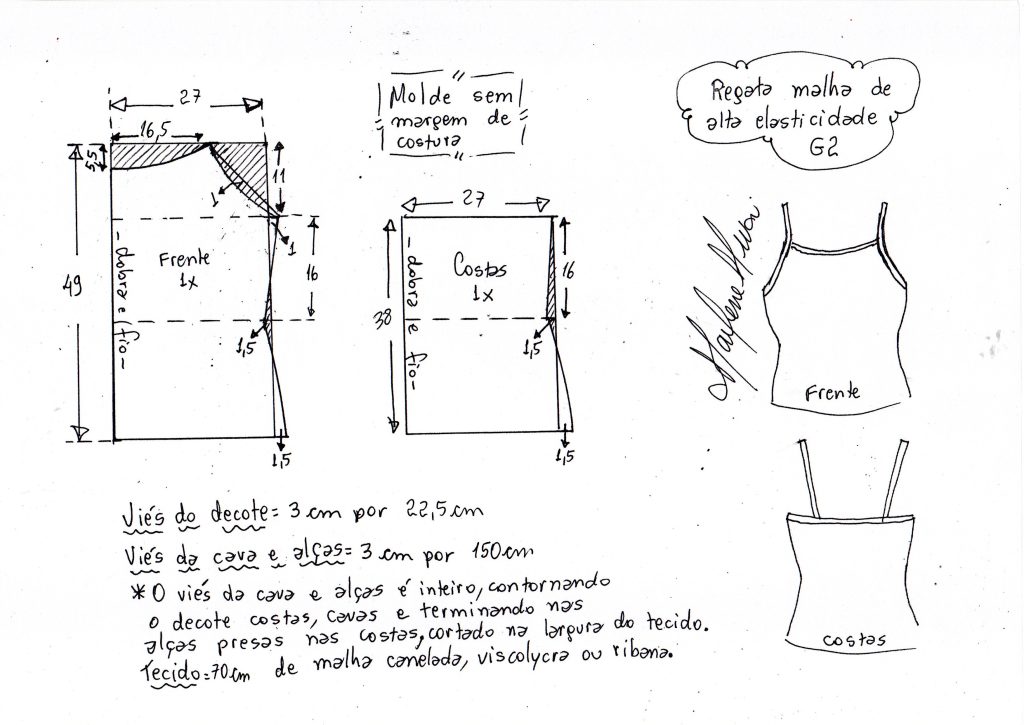 27
16,5
5,5
11
1
1
49
- dobra e fio -
Frente
1x
16
1,5
1,5
Molde sem
margem de
costura
27
38
- dobra e fio -
Costas
1x
16
1,5
1,5
Regata malha de
alta elasticidade
G2
Marlene Mukai
Frente
costas
Viés do decote = 3 cm por 22,5 cm
Viés da cava e alças = 3 cm por 150 cm
* O viés da cava e alças é inteiro, contornando
o decote costas, cavas e terminando nas
alças presas nas costas, cortado na largura do tecido.
Tecido = 70 cm de malha canelada, viscolycra ou ribana.